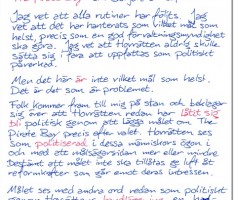 Jag vet att alla rutiner har följts. Jag
vet att det har hanterats som vilket mål som
helst, precis som en god förvaltningsmyndighet
ska göra. Jag vet att Hovrätten aldrig skulle
sätta sig i fara att uppfattas som politiskt
påverkad.
Men det här är inte vilket mål som helst.
Det är det som är problemet.
Folk kommer fram till mig på stan och beklagar
sig över att Hovrätten redan har låtit sig
bli politisk genom att lägga målet om The
Pirate Bay precis efter valet. Hovrätten ses
som politiserad i dessa människors ögon,
och med att målsägarsidan mer eller mindre
att målet inte ska tillåtas ge luft åt
reformkrafter som går emot deras intressen.
Målet ses med andra ord redan som politiskt